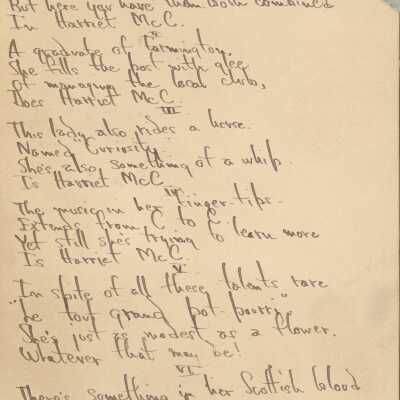 But here you have them both combined
In Harriet McC.
II
A graduate of Farmington,
She fills the post with glee
Of managing the local club,
Does Harriet McC.
III
This lady also rides a horse
Named "Curiosity"
She's also something of a whip.
Is Harriet McC.
IV
The music in her finger-tips
Extends from C to C
Yet still she's trying to learn more
Is Harriet McC.
V
In spite of all these talents rare
"Le tout grand pot-pourri"
She's just as modest as a flower.
Whatever that may be!
VI
There's something in her Scottish blood